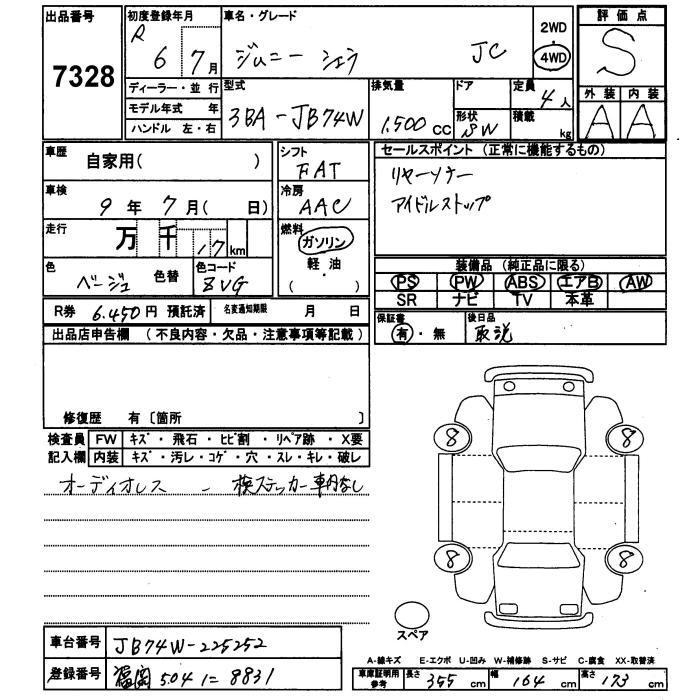 出品番号
7328
初度登録年月
R 6 7月
車名・グレード
ジムニー シエラ JC
2WD
4WD
評価点
S
外装 内装
A A
ディーラー・並行
モデル年式 年
ハンドル 左・右
型式
3BA-JB74W
排気量
1,500 CC
ドア
形状
SW
定員 4人
積載
kg
車歴
自家用( )
シフト
FAT
車検
9年 7月( 日)
冷房
AAC
走行
万 千 17 km
燃料
ガソリン
軽・油
( )
色
ベージュ 色替
色コード
ZVG
R券 6,450円 預託済 名変通知期限 月 日
セールスポイント (正常に機能するもの)
リヤーソナー
アイドルストップ
装備品 (純正品に限る)
PS PW ABS エアB AW
SR ナビ TV 本革
保証書
有・無
後日品
取説
出品店申告欄 (不良内容・欠品・注意事項等記載)
修復歴 有〔箇所 〕
検査員 FW キズ・飛石・ヒビ割・リペア跡・X要
記入欄 内装 キズ・汚レ・コゲ・穴・スレ・キレ・破レ
オーディオレス - 検ステッカー車内なし
8 8
8 8
スペア
車台番号 JB74W-225252
登録番号 福岡 504 に 8831
A-線キズ E-エクボ U-凹み W-補修跡 S-サビ C-腐食 XX-取替済
車庫証明用参考 長さ 355 cm 幅 164 cm 高さ 173 cm